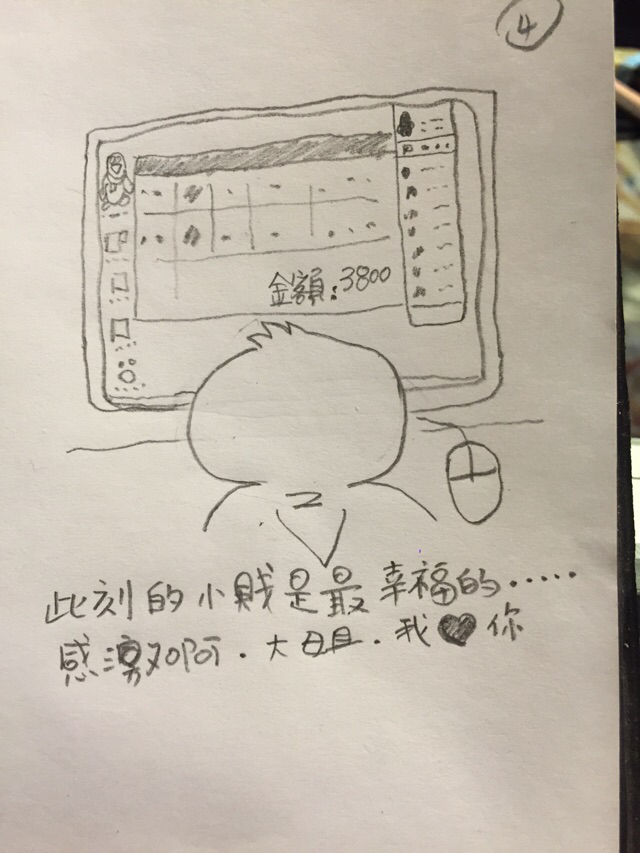 4
金額:3800
此刻的小賤是最幸福的.....
感激啊.大姐.我♥你